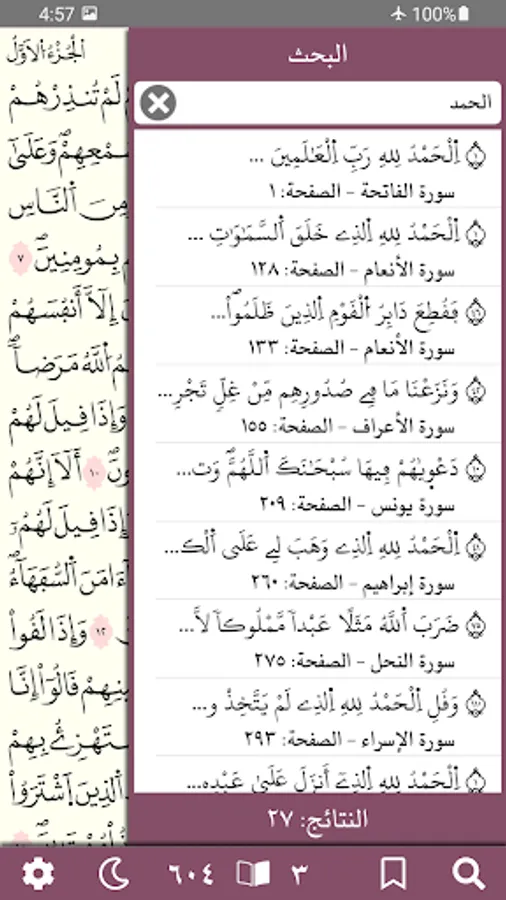 4:57 100%
البحث
الحمد
اِ۬لْحَمْدُ لِلهِ رَبِّ اِ۬لْعَٰلَمِينَ ...
سورة الفاتحة - الصفحة: ١
اِ۬لْحَمْدُ لِلهِ اِ۬لذِے خَلَقَ اَ۬لسَّمَٰوَٰتِ ...
سورة الأنعام - الصفحة: ١٢٨
فَقُطِعَ دَابِرُ اُ۬لْقَوْمِ اِ۬لذِينَ ظَلَمُواْۖ...
سورة الأنعام - الصفحة: ١٣٣
وَنَزَعْنَا مَا فِے صُدُورِهِم مِّنْ غِلّٖ تَجْرِ...
سورة الأعراف - الصفحة: ١٥٥
دَعْوٜيٰهُمْ فِيهَا سُبْحَٰنَكَ اَ۬للَّهُمَّۖ وَت...
سورة يونس - الصفحة: ٢٠٩
اِ۬لْحَمْدُ لِلهِ اِ۬لذِے وَهَبَ لِے عَلَي اَ۬لْكِ...
سورة إبراهيم - الصفحة: ٢٦٠
ضَرَبَ اَ۬للَّهُ مَثَلًا عَبْداٗ مَّمْلُوكاٗ لَّا...
سورة النحل - الصفحة: ٢٧٥
وَقُلِ اِ۬لْحَمْدُ لِلهِ اِ۬لذِے لَمْ يَتَّخِذْ و...
سورة الإسراء - الصفحة: ٢٩٣
اِ۬لْحَمْدُ لِلهِ اِ۬لذِےٓ أَنزَلَ عَلَيٰ عَبْدِهِ...
النتائج: ٢٧
اَلْجُزْءُ اُلْأَوَّلُ
لَمْ تُنذِرْهُمْ
وَعَلَيٰٓ
مِنَ اَ۬لنَّاسِ
بِمُومِنِينَۖ ٧
إِلَّآ أَنفُسَهُمْ
اُ۬للَّهُ مَرَضاٗۖ
وَإِذَا قِيلَ لَهُمْ
١٠ أَلَآ إِنَّهُمْ
إِذَا قِيلَ لَهُمُۥٓ
ءَامَنَ اَ۬لسُّفَهَآءُۖ
١٢ وَإِذَا لَقُواْ
قَالُوٓاْ إِنَّا
يَسْتَهْزِئُ بِهِمْ
اَ۬لذِينَ اَ۪شْتَرَوُاْ
٣ ٦٠٤